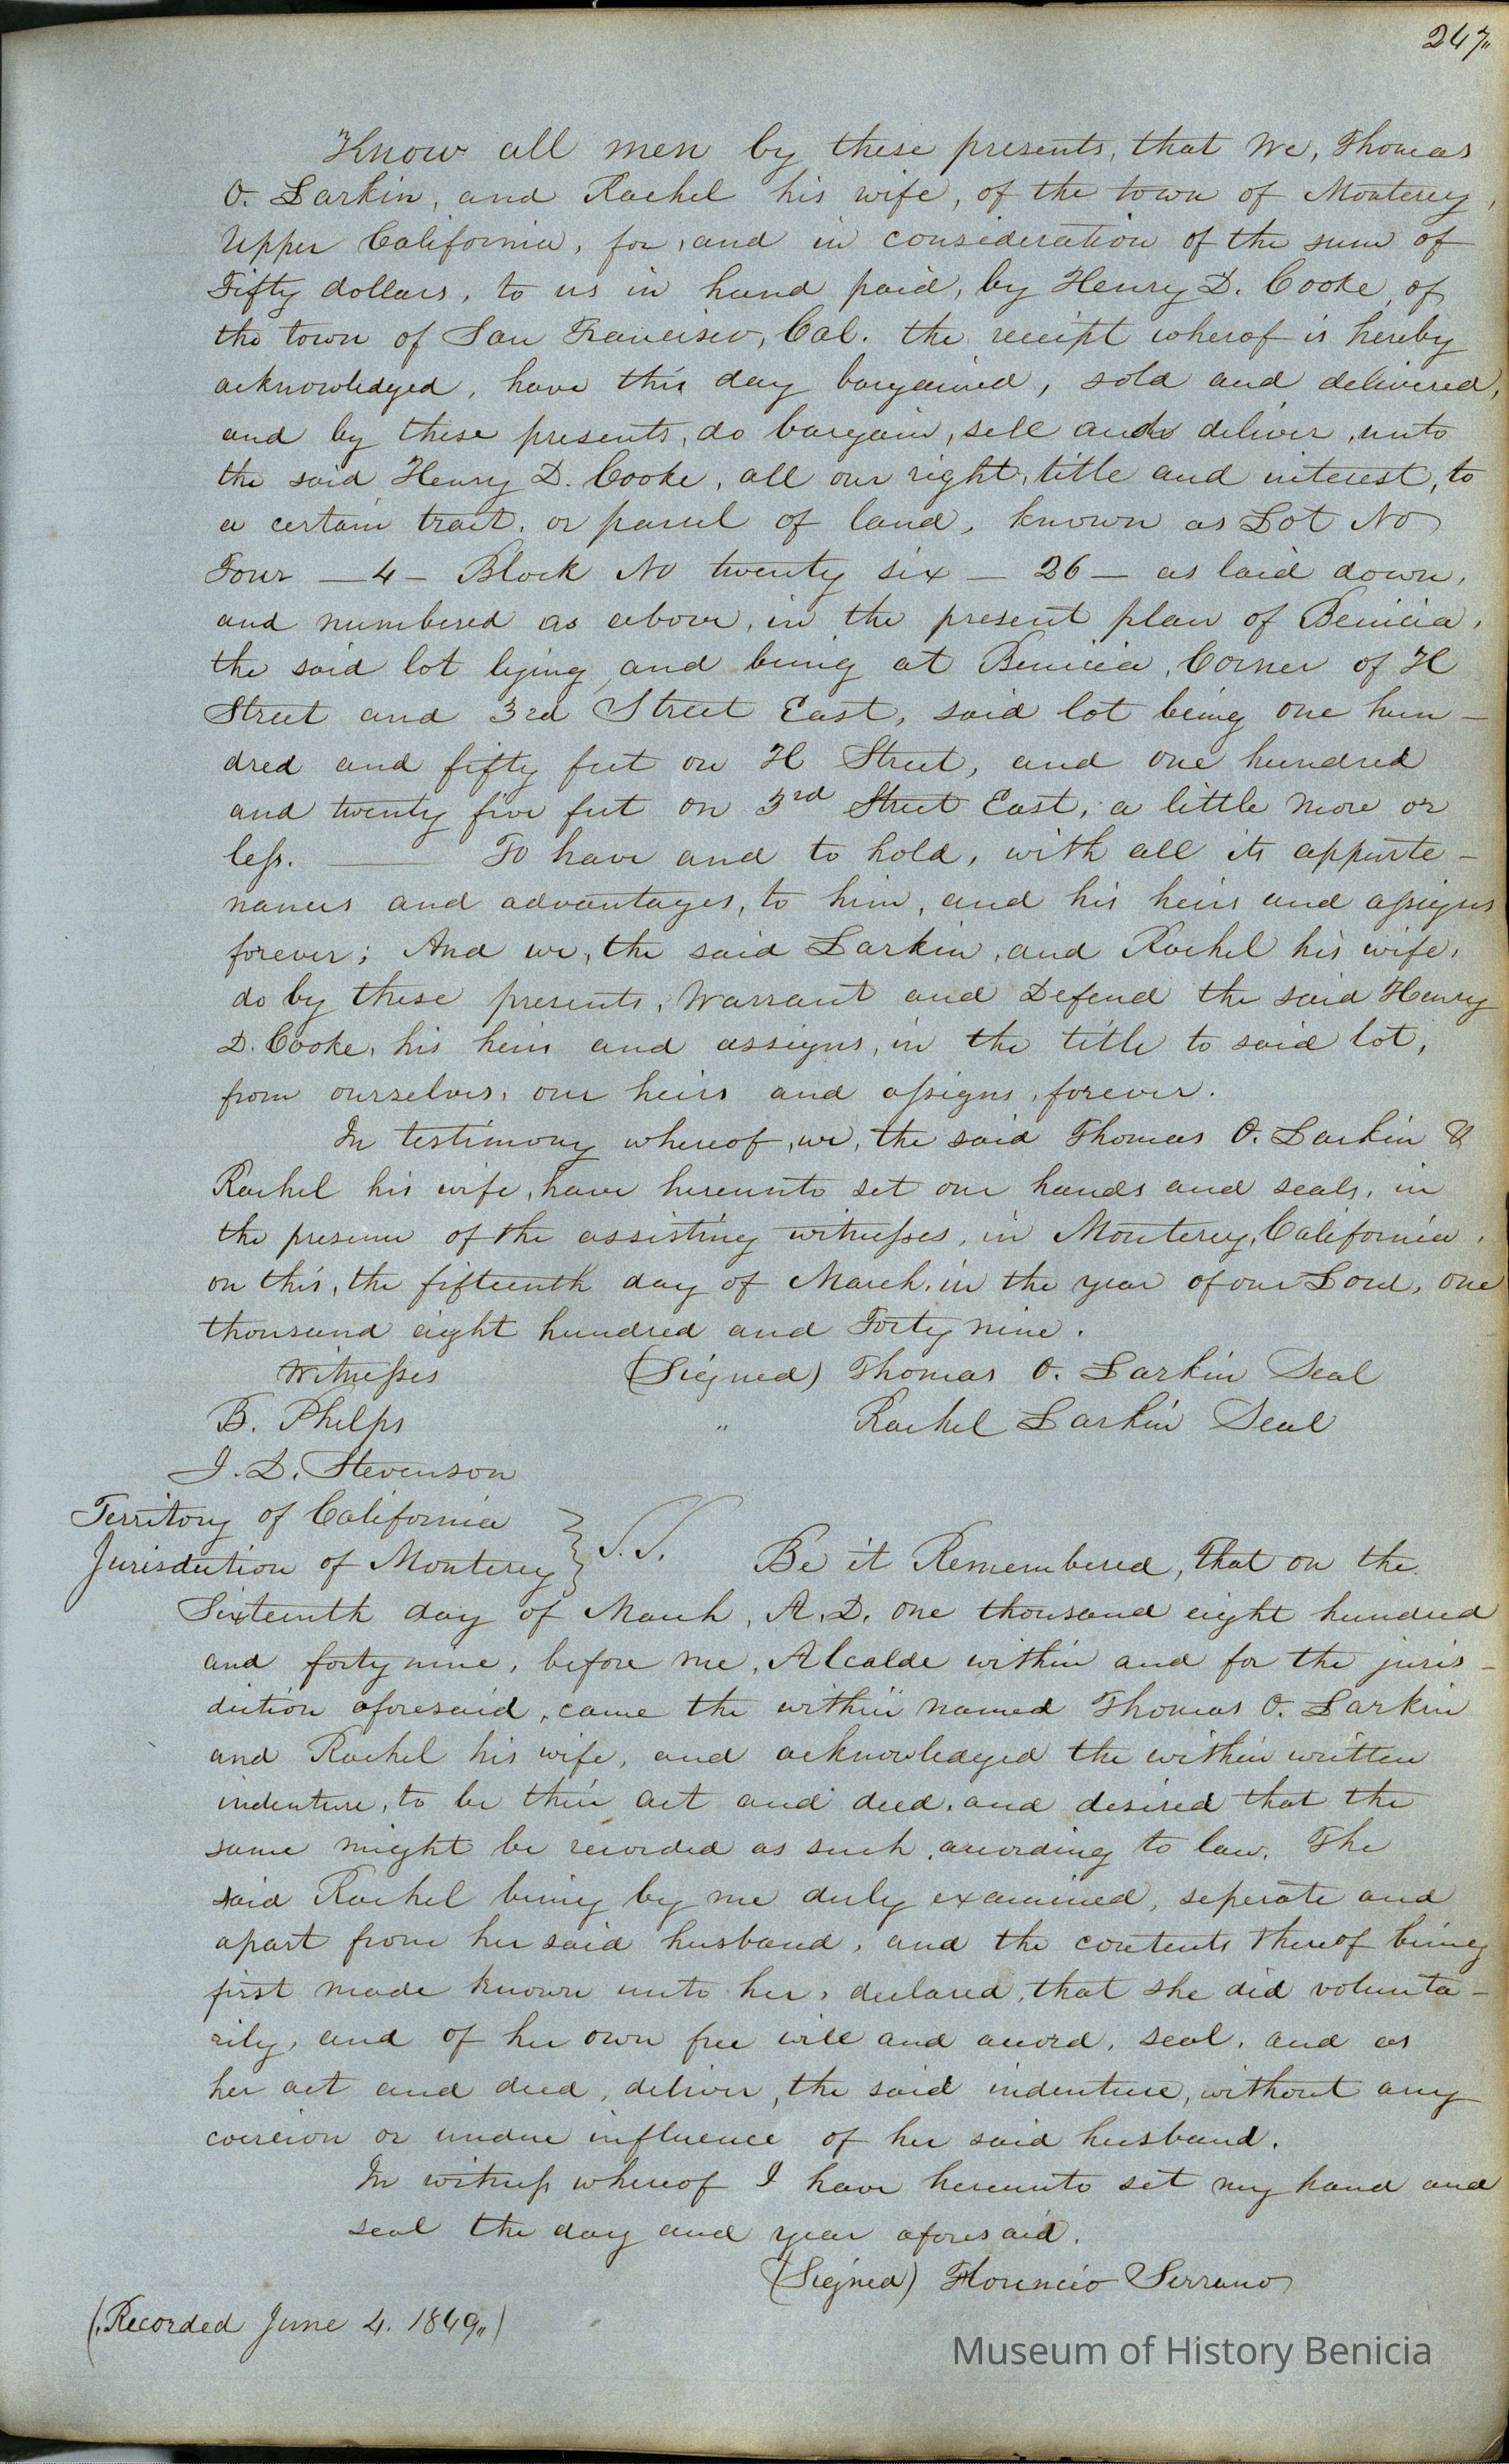 247"
Know all men by these presents, that We, Thomas
O. Larkin, and Rachel his wife, of the town of Monterey,
Upper California, for, and in consideration of the sum of
Fifty dollars, to us in hand paid, by Henry D. Cooke, of
the town of San Francisco, Cal. the receipt wherof is hereby
acknowledged, have this day bargained, sold and delivered,
and by these presents, do bargain, sell and deliver, unto
the said Henry D. Cooke, all our right, title and interest, to
a certain tract, or parcel of land, known as Lot No
Four — 4 — Block No twenty six — 26 — as laid down,
and numbered as above, in the present plan of Benicia,
the said lot lying, and being at Benicia, Corner of H
Street and 3rd Street East, said lot being one hun-
dred and fifty feet on H Street, and one hundred
and twenty five feet on 3rd Street East, a little more or
less. — To have and to hold, with all its apperte-
nances and advantages, to him, and his heirs and assigns
forever; And we, the said Larkin, and Rachel his wife,
do by these presents, Warrant and Defend the said Henry
D. Cooke, his heirs and assigns, in the title to said lot,
from ourselves, our heirs and assigns, forever.
In testimony whereof, we, the said Thomas O. Larkin &
Rachel his wife, have hereunto set our hands and seals, in
the presence of the assisting witnesses, in Monterey, California,
on this, the fifteenth day of March, in the year of our Lord, one
thousand eight hundred and Forty nine.
Witnesses (Signed) Thomas O. Larkin Seal
B. Phelps " Rachel Larkin Seal
J. D. Stevenson
Territory of California
Jurisdiction of Monterey } S.S. Be it Remembered, that on the
Sixteenth day of March, A.D. one thousand eight hundred
and forty nine, before me, Alcalde within and for the juris-
diction aforesaid, came the within named Thomas O. Larkin
and Rachel his wife, and acknowledged the within written
indenture, to be their act and deed, and desired that the
same might be recorded as such, according to law. The
said Rachel being by me duly examined, seperate and
apart from her said husband, and the contents thereof being
first made known unto her, declared, that she did volunta-
rily, and of her own free will and accord, seal, and as
her act and deed, deliver, the said indenture, without any
coercion or undue influence of her said husband.
In witness whereof I have hereunto set my hand and
seal the day and year aforesaid.
(Signed) Florencio Serrano
(Recorded June 4. 1849")
Museum of History Benicia